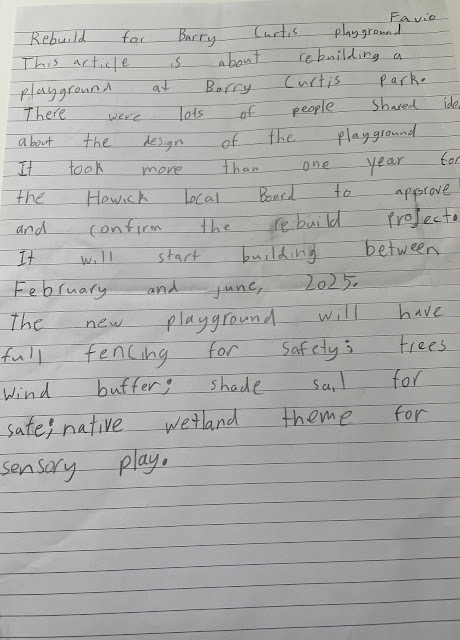 Favio
Rebuild for Barry Curtis playground
This article is about rebuilding a
playground at Barry Curtis Park.
There were lots of people shared idea
about the design of the playground
It took more than one year for
the Howick Local Board to approve
and confirm the rebuild project.
It will start building between
February and june, 2025.
The new playground will have
full fencing for safety; trees
wind buffer; shade sail for
safe; native wetland theme for
sensory play.